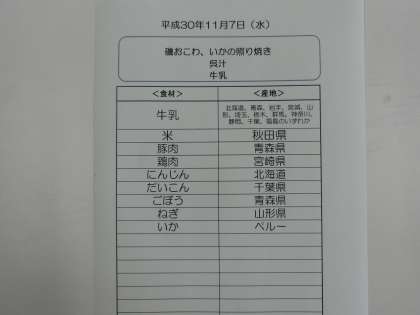 平成30年11月7日（水）
磯おこわ、いかの照り焼き
呉汁
牛乳
＜食材＞ ＜産地＞
牛乳 北海道、青森、岩手、宮城、山
形、埼玉、栃木、群馬、神奈川、
静岡、千葉、福島のいずれか
米 秋田県
豚肉 青森県
鶏肉 宮崎県
にんじん 北海道
だいこん 千葉県
ごぼう 青森県
ねぎ 山形県
いか ペルー